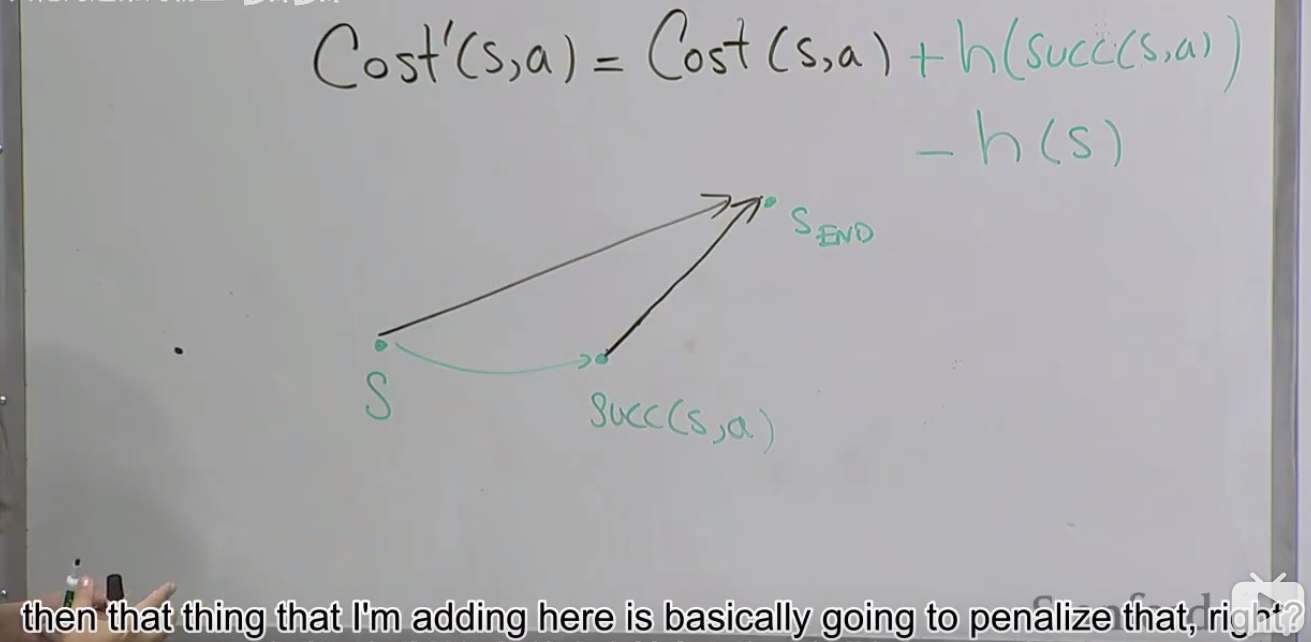 Cost'(s,a) = Cost(s,a) + h(succ(s,a))
- h(s)
S_END
S
Succ(s,a)
then that thing that I'm adding here is basically going to penalize that, right?